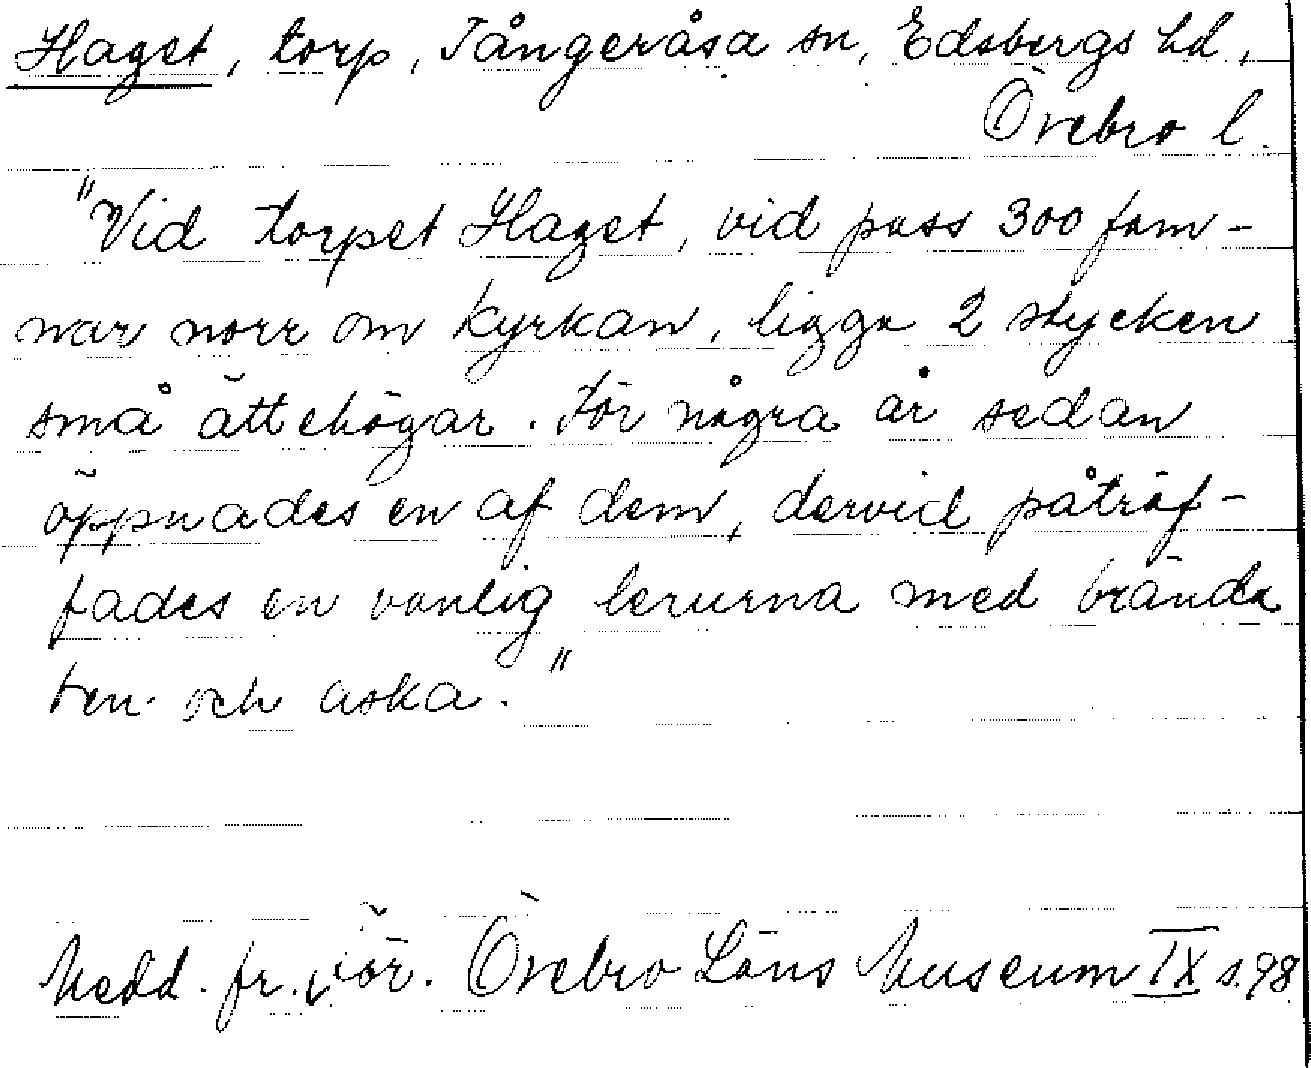 Haget, torp, Tångeråsa sn, Edsbergs hd,
Örebro l.
"Vid torpet Haget, vid pass 300 fam-
nar norr om kyrkan, ligga 2 stycken
små ättehögar. För några år sedan
öppnades en af dem, dervid påträf-
fades en vanlig lerurna med brända
ben och aska."
Medd. fr. för. Örebro Läns Museum IX s. 98